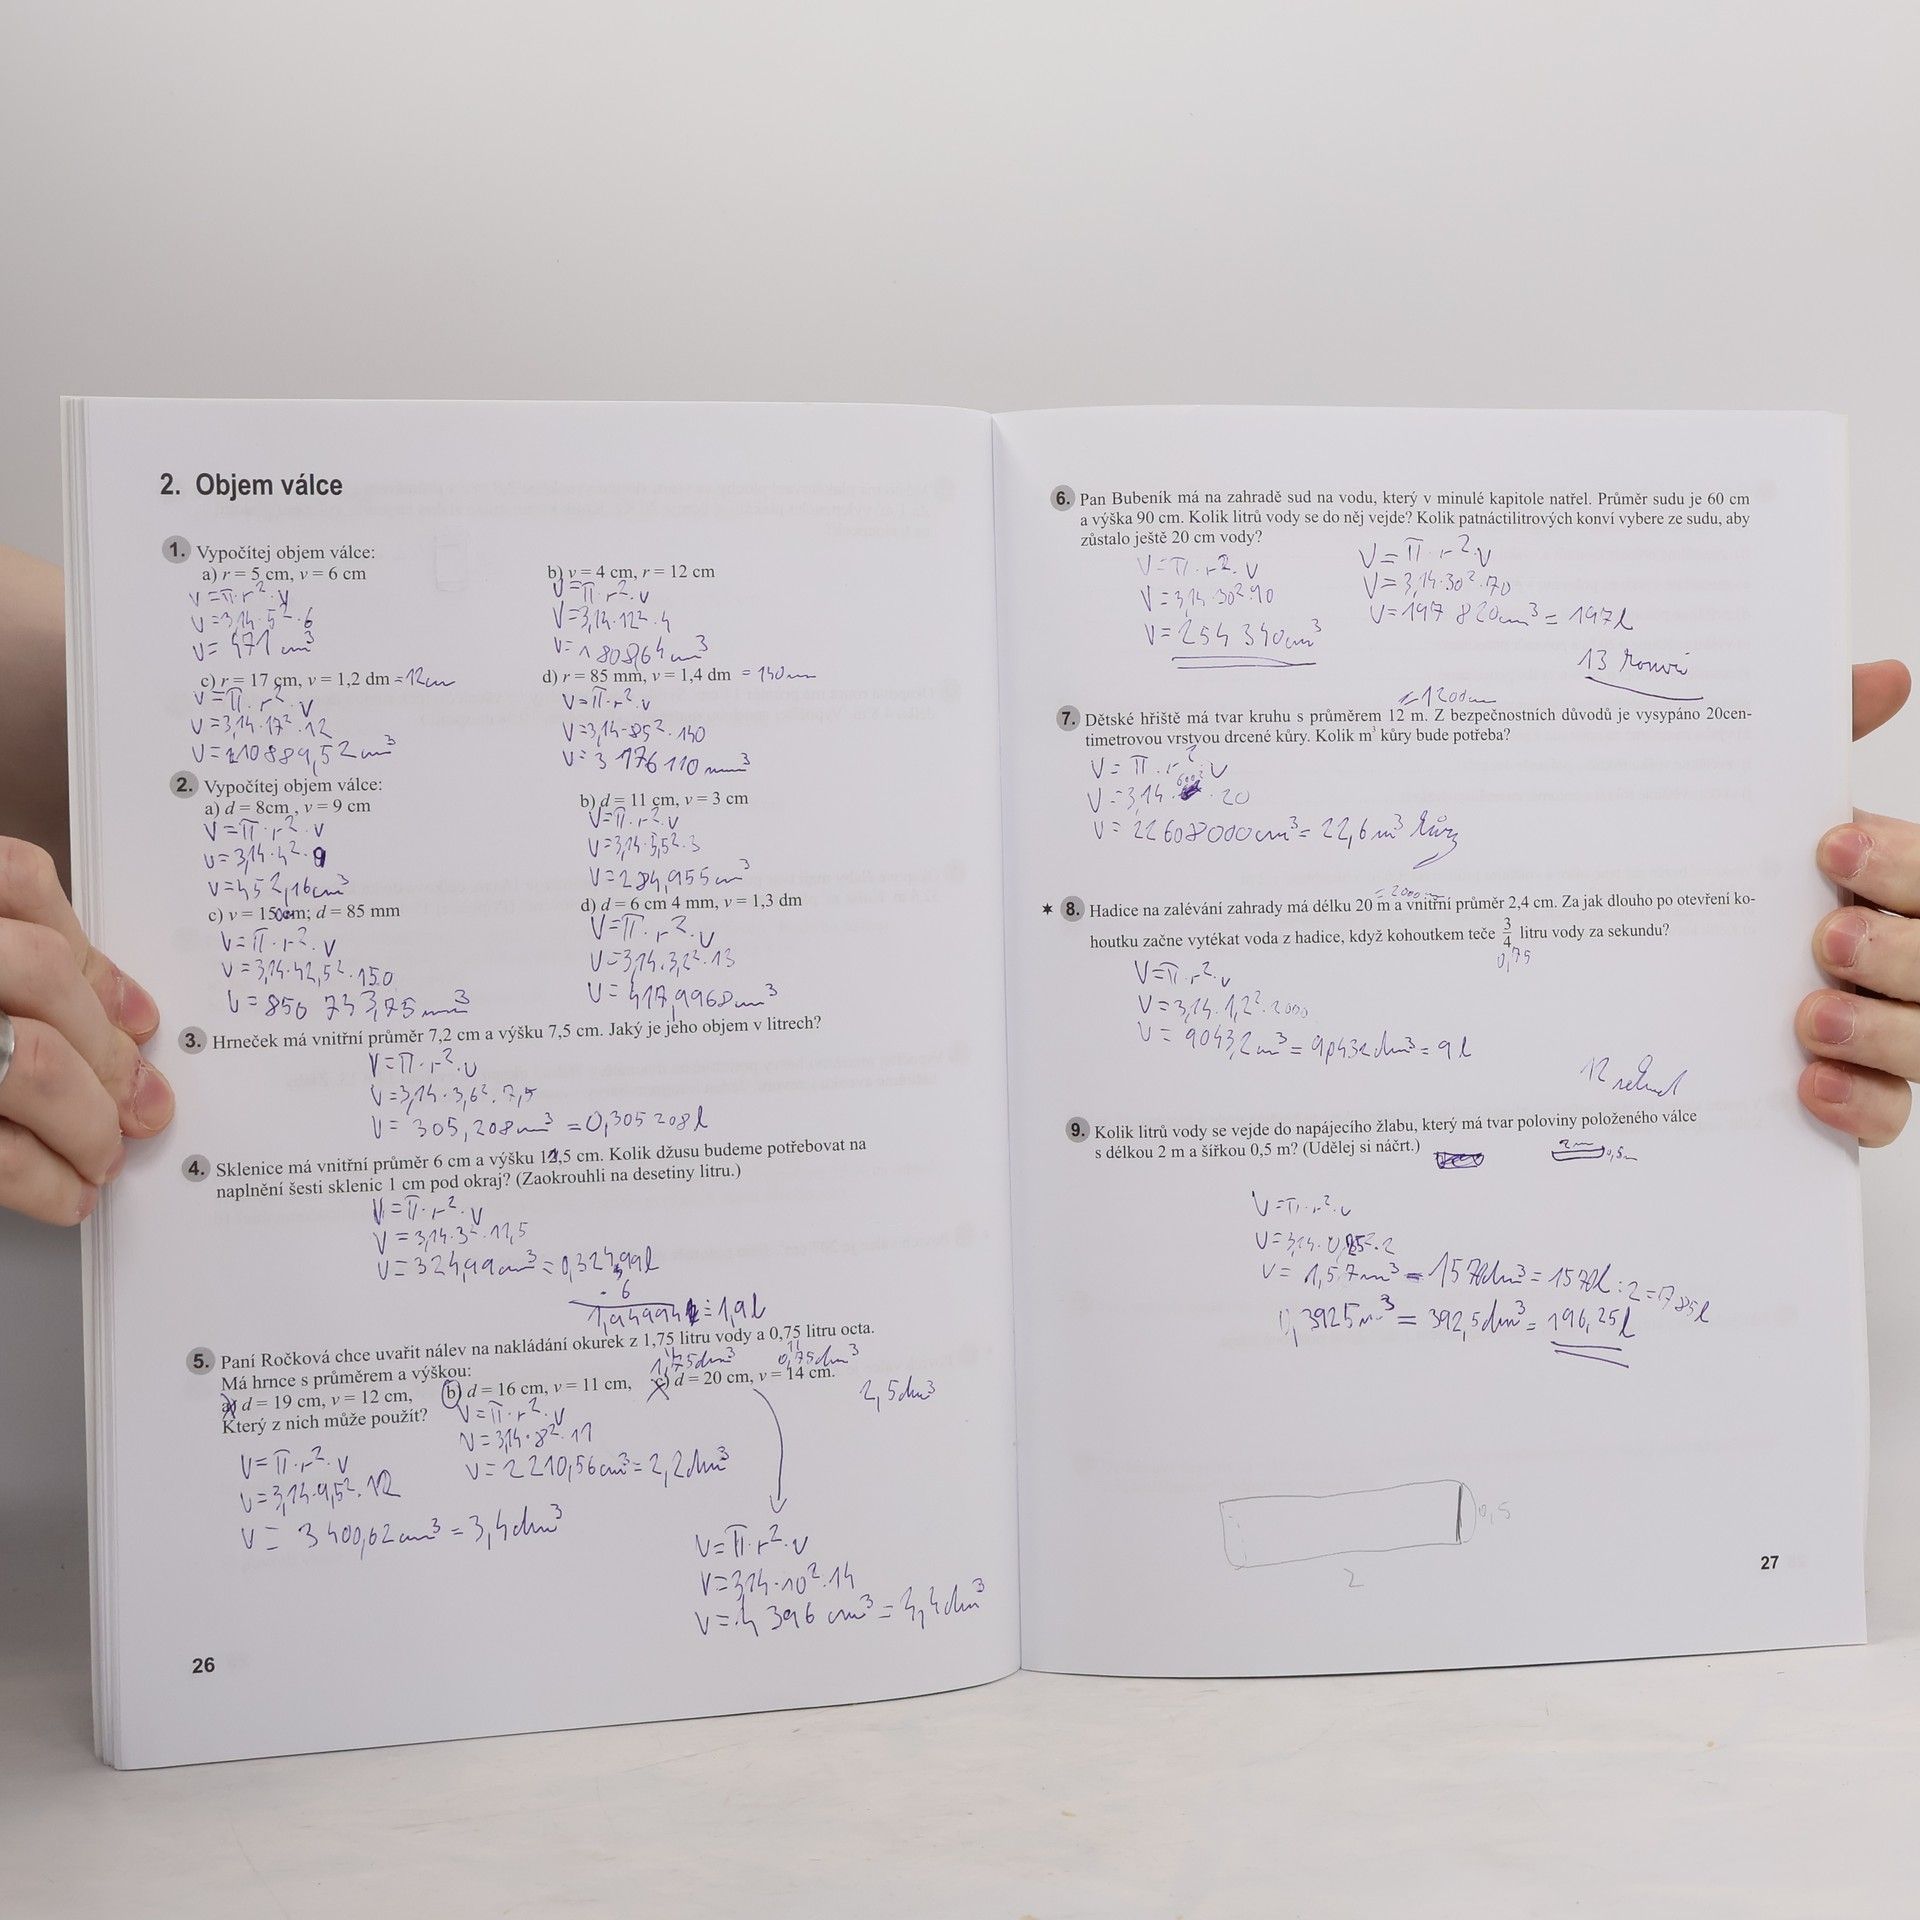 2. Objem válce
1. Vypočítej objem válce:
a) r = 5 cm, v = 6 cm
V = π · r² · v
V = 3,14 · 5² · 6
V = 471 cm³
b) v = 4 cm, r = 12 cm
V = π · r² · v
V = 3,14 · 12² · 4
V = 1808,64 cm³
c) r = 17 cm, v = 1,2 dm = 12cm
V = π · r² · v
V = 3,14 · 17² · 12
V = 10889,52 cm³
d) r = 85 mm, v = 1,4 dm = 140mm
V = π · r² · v
V = 3,14 · 85² · 140
V = 3 176 110 mm³
2. Vypočítej objem válce:
a) d = 8cm , v = 9 cm
V = π · r² · v
V = 3,14 · 4² · 9
V = 452,16 cm³
b) d = 11 cm, v = 3 cm
V = π · r² · v
V = 3,14 · 5,5² · 3
V = 284,955 cm³
c) v = 150mm; d = 85 mm
V = π · r² · v
V = 3,14 · 42,5² · 150
V = 850 743,75 mm³
d) d = 6 cm 4 mm, v = 1,3 dm
V = π · r² · v
V = 3,14 · 3,2² · 13
V = 417,9968 cm³
3. Hrneček má vnitřní průměr 7,2 cm a výšku 7,5 cm. Jaký je jeho objem v litrech?
V = π · r² · v
V = 3,14 · 3,6² · 7,5
V = 305,208 cm³ = 0,305 208 l
4. Sklenice má vnitřní průměr 6 cm a výšku 12,5 cm. Kolik džusu budeme potřebovat na
naplnění šesti sklenic 1 cm pod okraj? (Zaokrouhli na desetiny litru.)
V = π · r² · v
V = 3,14 · 3² · 11,5
V = 324,99 cm³ = 0,32499 l
· 6
1,94994 l ≐ 1,9 l
5. Paní Ročková chce uvařit nálev na nakládání okurek z 1,75 litru vody a 0,75 litru octa.
1,75 dm³ 0,75 dm³
Má hrnce s průměrem a výškou:
a) d = 19 cm, v = 12 cm, b) d = 16 cm, v = 11 cm, c) d = 20 cm, v = 14 cm.
2,5 dm³
Který z nich může použít?
V = π · r² · v
V = 3,14 · 9,5² · 12
V = 3 400,62 cm³ = 3,4 dm³
V = π · r² · v
V = 3,14 · 8² · 11
V = 2 210,56 cm³ = 2,2 dm³
V = π · r² · v
V = 3,14 · 10² · 14
V = 4 396 cm³ = 4,4 dm³
26
6. Pan Bubeník má na zahradě sud na vodu, který v minulé kapitole natřel. Průměr sudu je 60 cm
a výška 90 cm. Kolik litrů vody se do něj vejde? Kolik patnáctilitrových konví vybere ze sudu, aby
zůstalo ještě 20 cm vody?
V = π · r² · v
V = 3,14 · 30² · 90
V = 254 340 cm³
V = π · r² · v
V = 3,14 · 30² · 70
V = 197 820 cm³ = 197 l
13 konví
= 1200cm
7. Dětské hřiště má tvar kruhu s průměrem 12 m. Z bezpečnostních důvodů je vysypáno 20cen-
timetrovou vrstvou drcené kůry. Kolik m³ kůry bude potřeba?
V = π · r² · v
V = 3,14 · 600² · 20
V = 22608000 cm³ = 22,6 m³ kůry
= 2000cm
★ 8. Hadice na zalévání zahrady má délku 20 m a vnitřní průměr 2,4 cm. Za jak dlouho po otevření ko-
houtku začne vytékat voda z hadice, když kohoutkem teče 3/4 litru vody za sekundu?
0,75
V = π · r² · v
V = 3,14 · 1,2² · 2000
V = 9043,2 cm³ = 9,0432 dm³ = 9 l
12 sekund
9. Kolik litrů vody se vejde do napájecího žlabu, který má tvar poloviny položeného válce
s délkou 2 m a šířkou 0,5 m? (Udělej si náčrt.)
2m
0,5m
V = π · r² · v
V = 3,14 · 0,25² · 2
V = 1,57 m³ = 1570 dm³ = 1570 l : 2 = 785 l
0,3925 m³ = 392,5 dm³ = 196,25 l
0,5
2
27